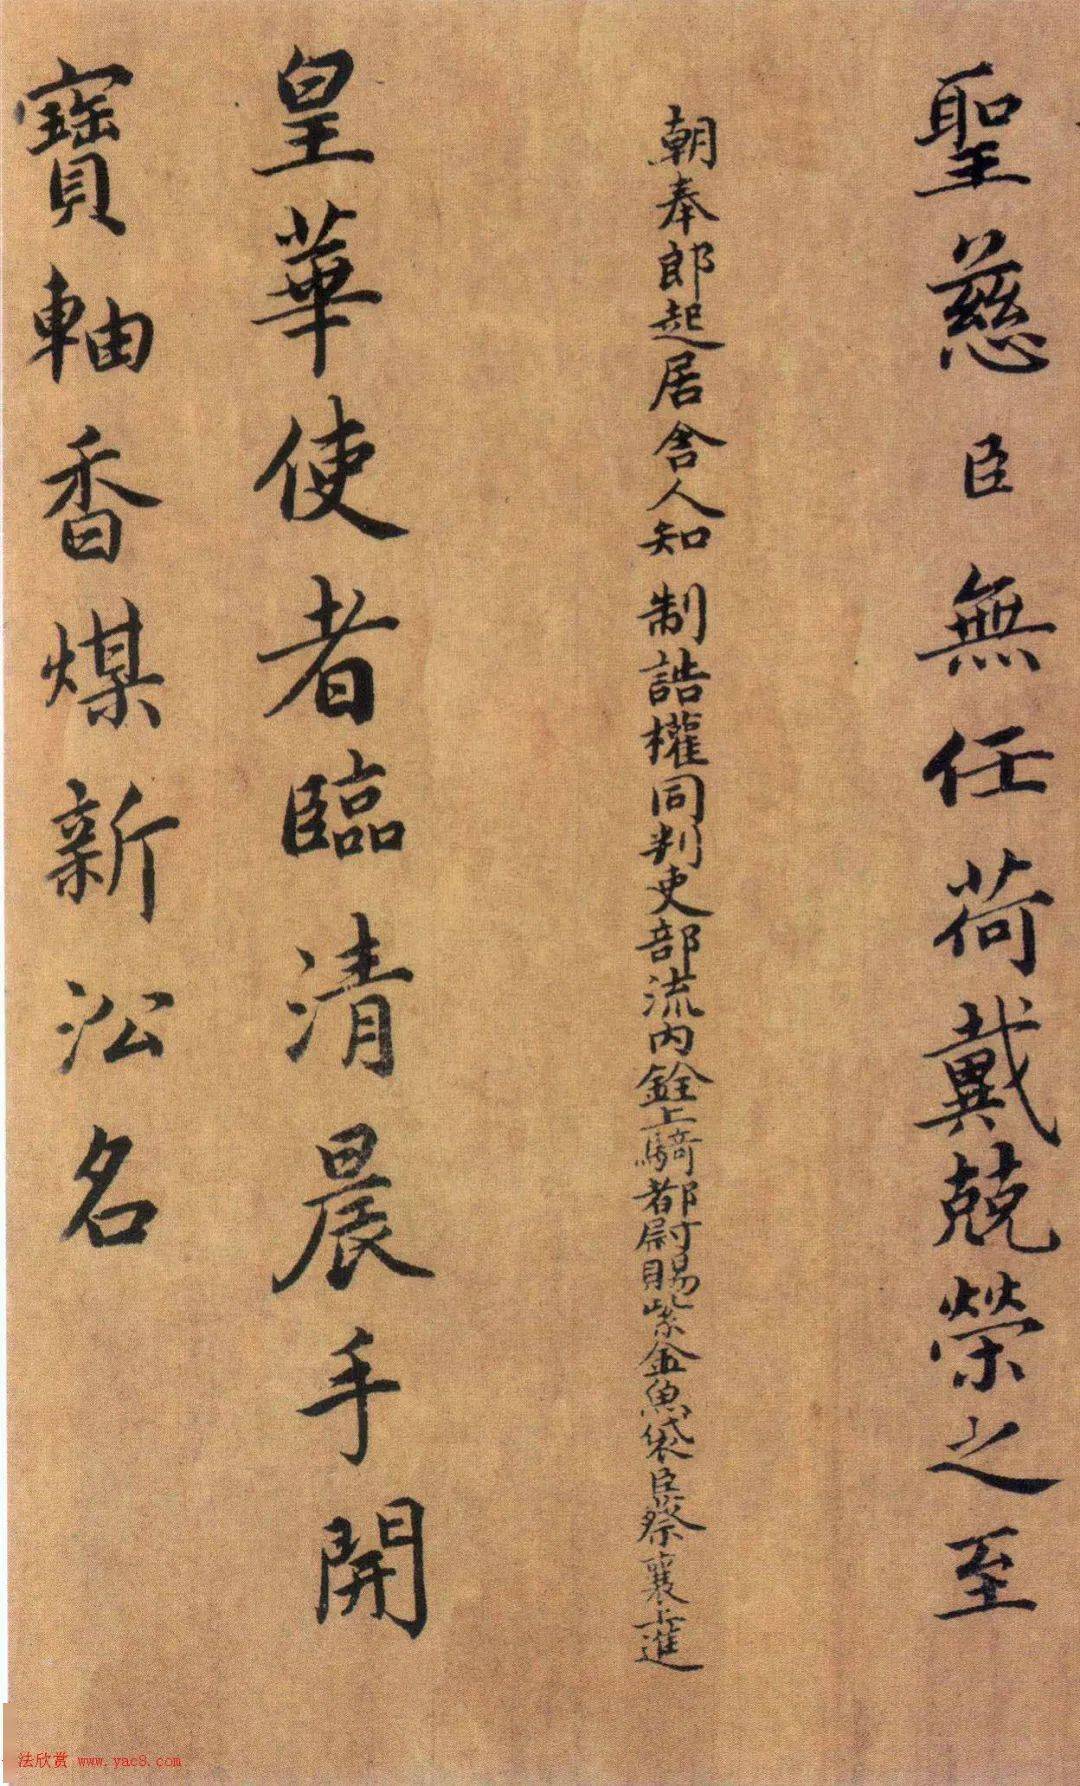 聖慈臣無任荷戴兢榮之至
朝奉郎起居舍人知制誥權同判吏部流內銓上騎都尉賜紫金魚袋臣蔡襄上進
皇華使者臨清晨手開
寶軸香煤新沄名
法欣赏 www.yac8.com